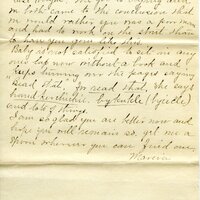 we both came to the conclusion that
we would rather you was a poor man
and had to work on the street than
to have you gone like this.
Baby is not satisfied to set in any
ones lap now without a book and
keeps turning over the pages saying
read that, for read that. She says
bycickle (bycicle)
and lots of things.
I am so glad you are better now and
hope you will remain so. get me a
spoon wherever you can find one.